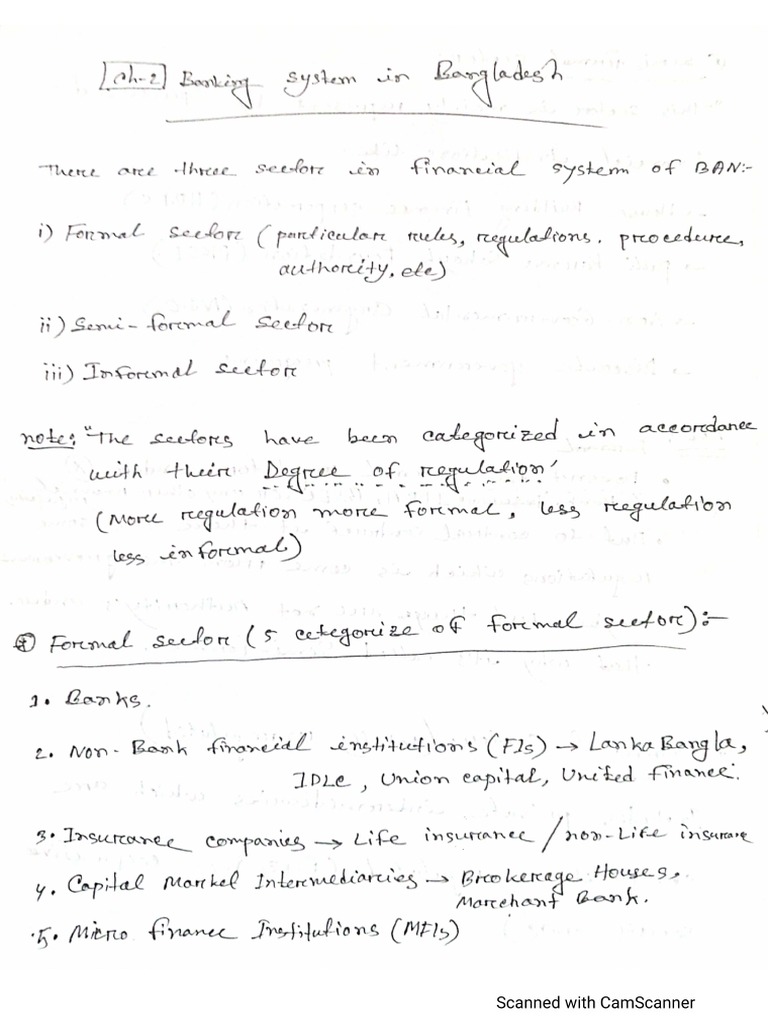 Ch-2 Banking system in Bangladesh
There are three sector in financial system of BAN:-
i) Formal sector (particular rules, regulations. procedure,
authority, etc)
ii) Semi-formal sector
iii) Informal sector
note: "The sectors have been categorized in accordance
with their Degree of regulation'
(More regulation more formal, less regulation
less informal)
Formal sector (5 cetegorize of formal sector):-
1. Banks.
2. Non-Bank financial institutions (FIs) → LankaBangla,
IDLC, Union capital, United finance.
3. Insurance companies → Life insurance / non-Life insurance
4. Capital Market Intermediaries → Brokerage Houses,
Marchant Bank.
5. Micro finance Institutions (MFIs)
Scanned with CamScanner